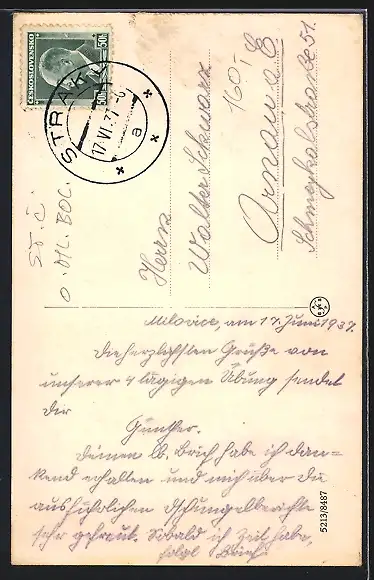 ČESKOSLOVENSKO
50h 50h
STRAK
17.VI.37.-6
a
Herrn
Walter Schwarz
Arnau a. E.
Schmeykalstraße 51.
160,-
o. MI. BOL.
Milovice, am 17. Juni 1937.
Die herzlichsten Grüße von
unserer 4 tägigen Übung sendet
dir
Günther.
Deinen lb. Brief habe ich dan-
kend erhalten und mich über die
ausführlichen Dschungelberichte
sehr gefreut. Sobald ich Zeit habe,
folgt 1 Brief.
5213/8487